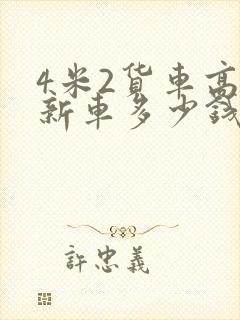 4米2货车高
新车多少钱
許忠義